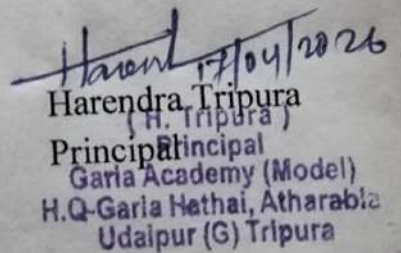 Harend 17/04/2026
Harendra Tripura
( H. Tripura )
Principal
Principal
Garia Academy (Model)
H.Q-Garia Hathai, Atharabla
Udaipur (G) Tripura